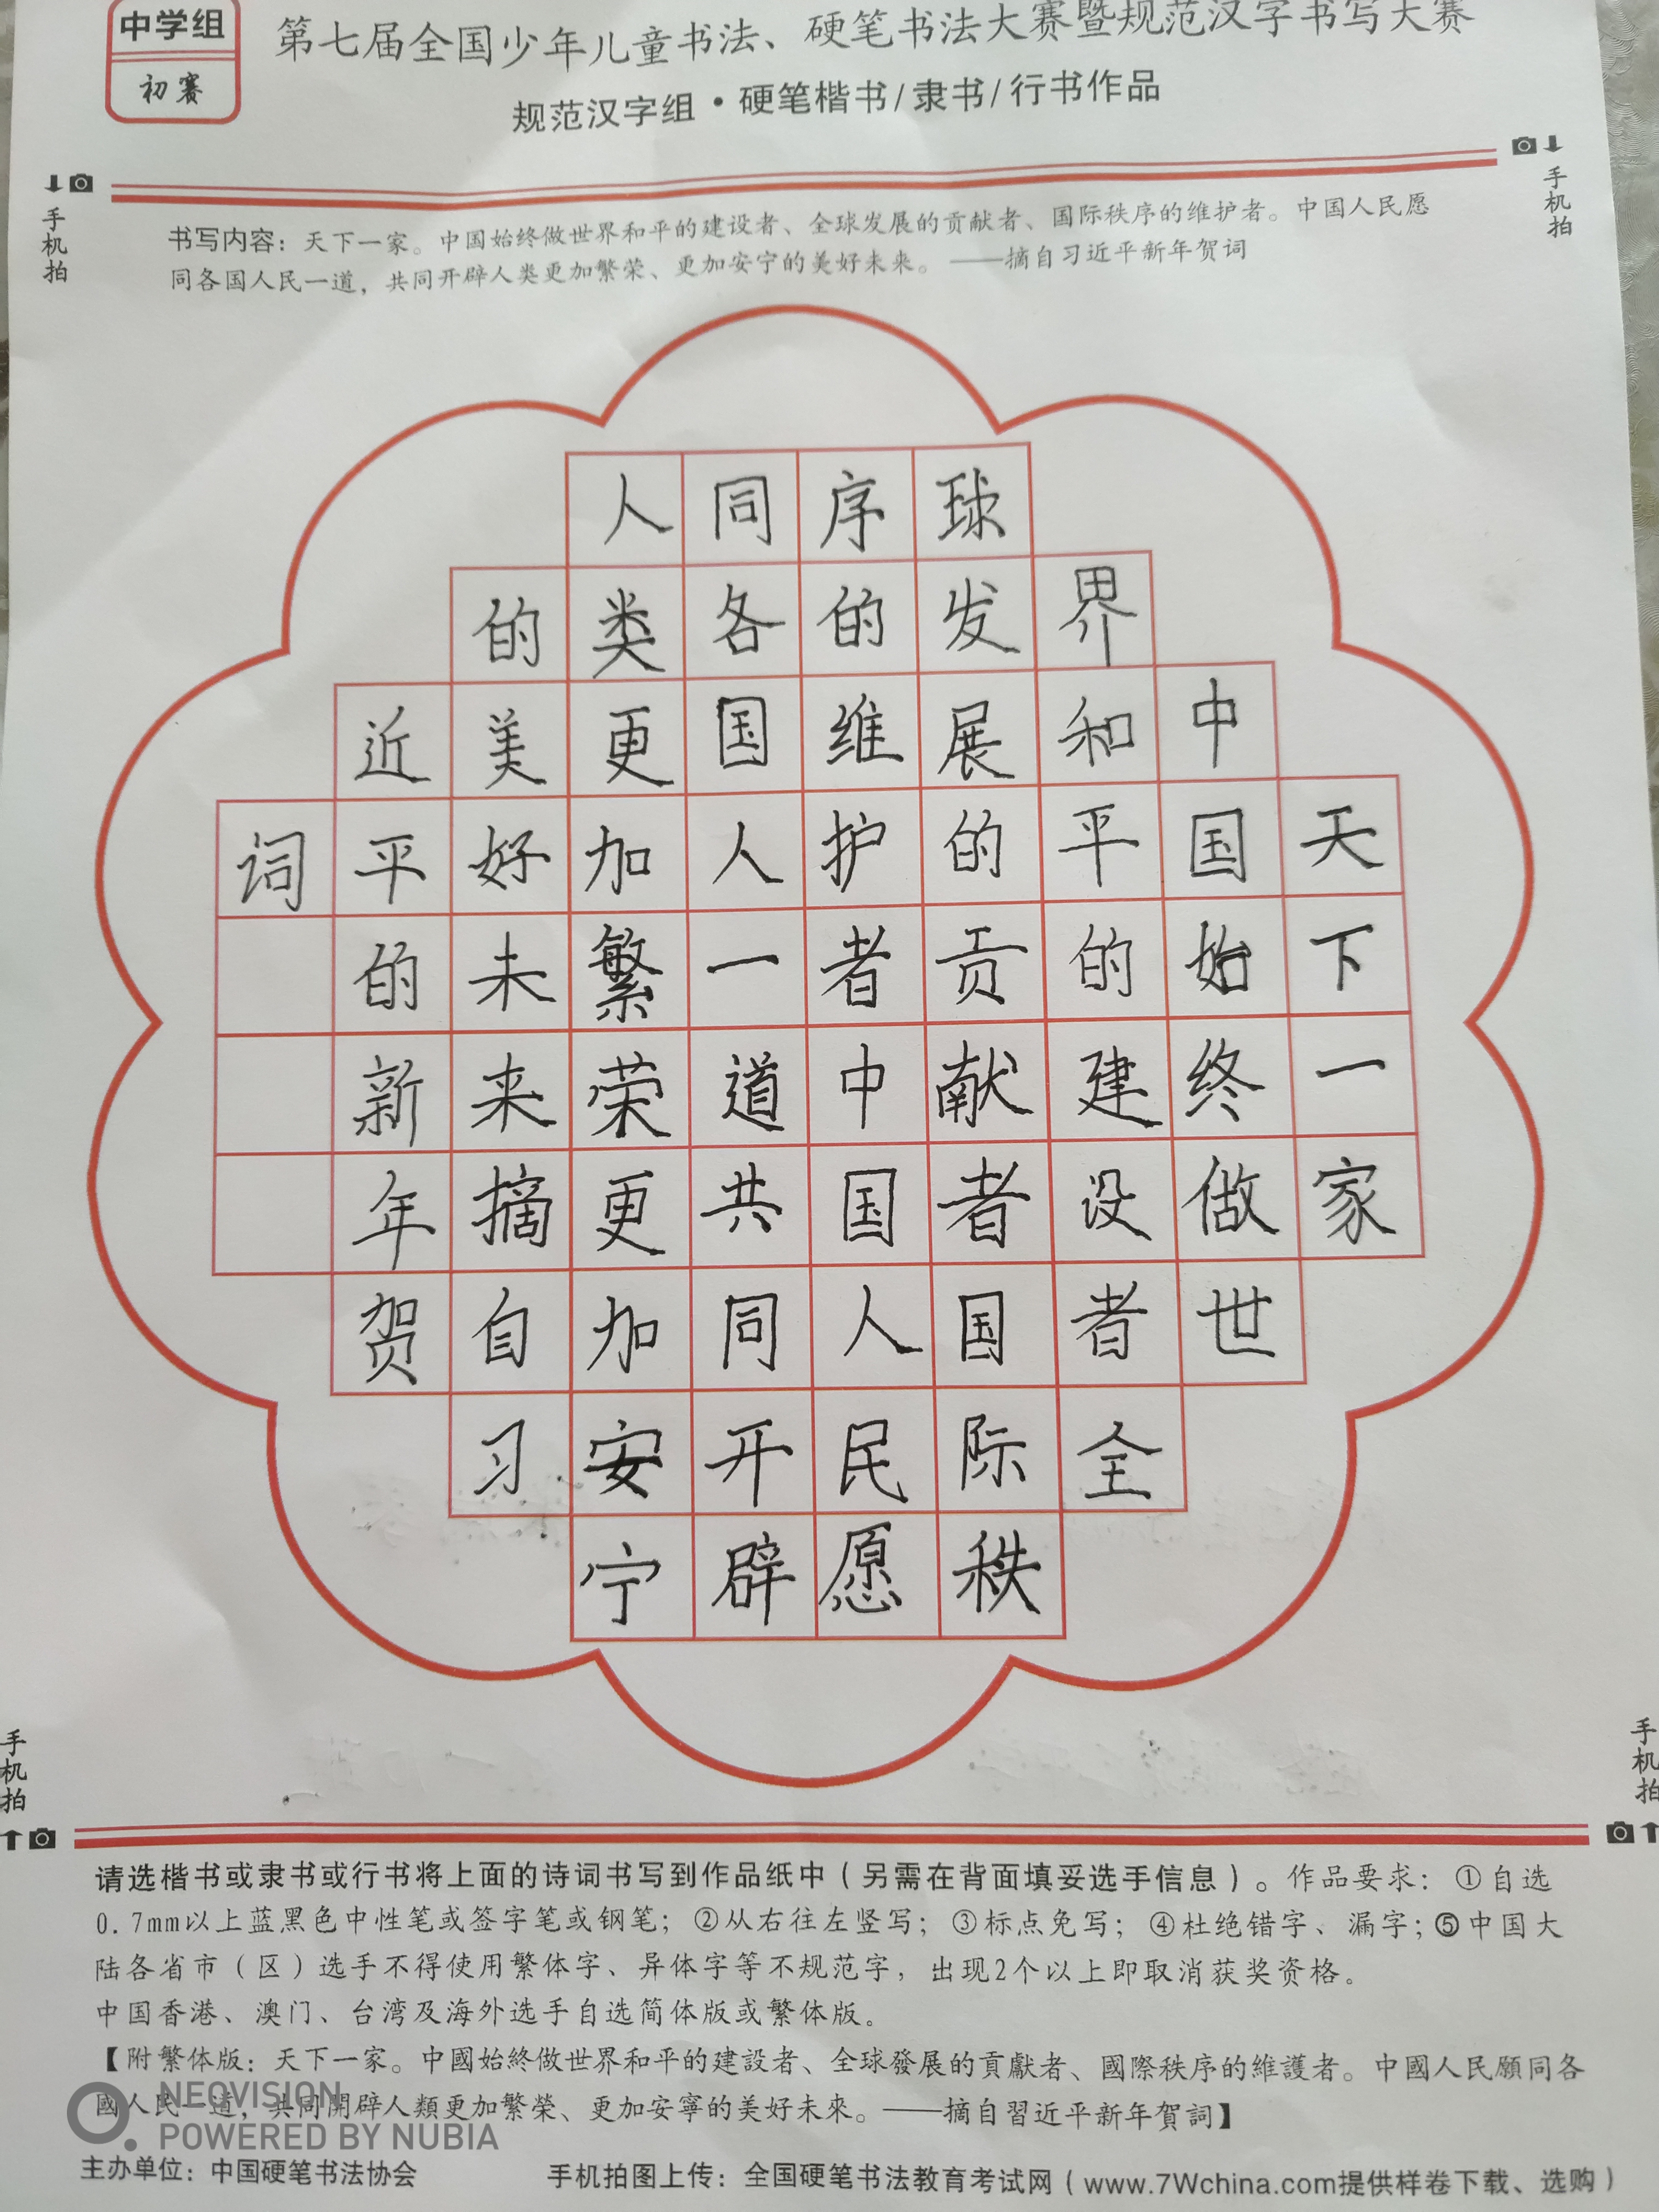 中学组
初赛
第七届全国少年儿童书法、硬笔书法大赛暨规范汉字书写大赛
规范汉字组·硬笔楷书/隶书/行书作品
手机拍
手机拍
书写内容：天下一家。中国始终做世界和平的建设者、全球发展的贡献者、国际秩序的维护者。中国人民愿
同各国人民一道，共同开辟人类更加繁荣、更加安宁的美好未来。——摘自习近平新年贺词
天下一家
中国始终做世
界和平的建设者全
球发展的贡献者国际秩
序的维护者中国人民愿
同各国人一道共同开辟
人类更加繁荣更加安宁
的美好未来摘自习
近平的新年贺
词
手机拍
手机拍
请选楷书或隶书或行书将上面的诗词书写到作品纸中（另需在背面填妥选手信息）。作品要求：①自选
0.7mm以上蓝黑色中性笔或签字笔或钢笔；②从右往左竖写；③标点免写；④杜绝错字、漏字；⑤中国大
陆各省市（区）选手不得使用繁体字、异体字等不规范字，出现2个以上即取消获奖资格。
中国香港、澳门、台湾及海外选手自选简体版或繁体版。
【附繁体版：天下一家。中國始終做世界和平的建設者、全球發展的貢獻者、國際秩序的維護者。中國人民願同各
國人民一道，共同開辟人類更加繁榮、更加安寧的美好未來。——摘自習近平新年賀詞】
NEOVISION
POWERED BY NUBIA
主办单位：中国硬笔书法协会
手机拍图上传：全国硬笔书法教育考试网（www.7Wchina.com提供样卷下载、选购）